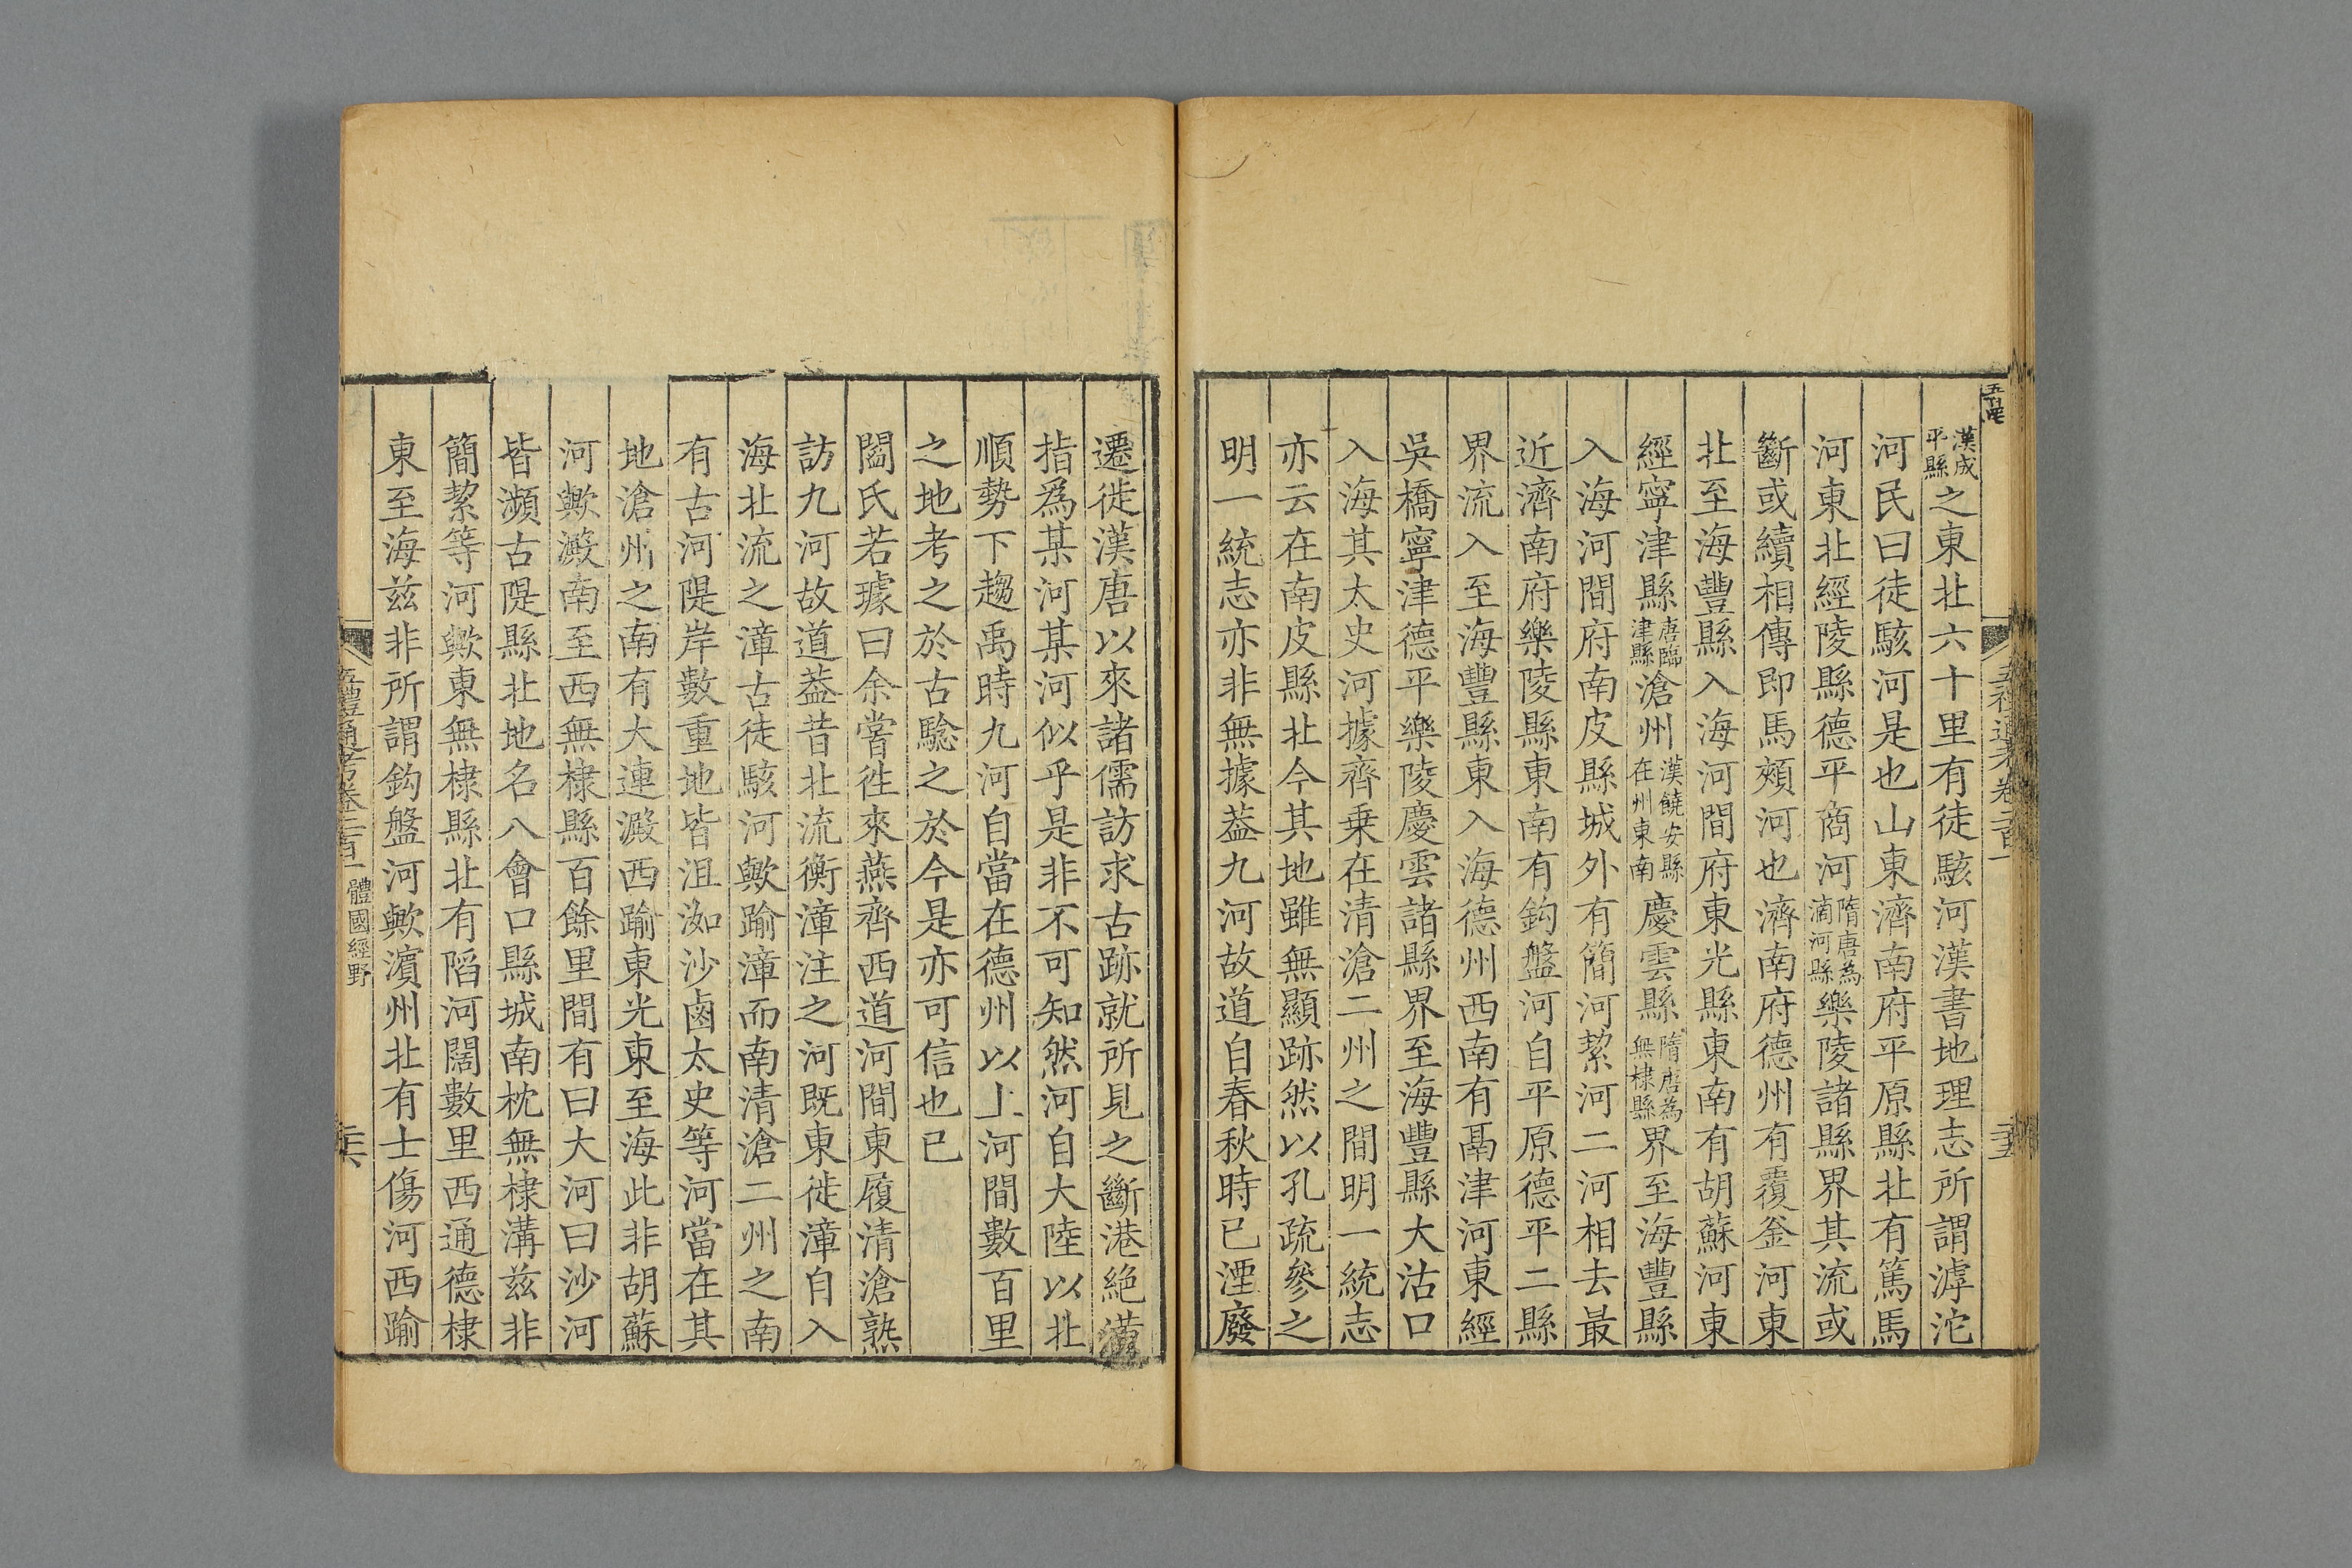 漢成平縣之東北六十里有徒駭河漢書地理志所謂滹沱
河民曰徒駭河是也山東濟南府平原縣北有篤馬
河東北經陵縣德平商河隋唐為滴河縣樂陵諸縣界其流或
斷或續相傳即馬頰河也濟南府德州有覆釜河東
北至海豐縣入海河間府東光縣東南有胡蘇河東
經寧津縣唐臨津縣滄州漢饒安縣在州東南慶雲縣隋唐為無棣縣界至海豐縣
入海河間府南皮縣城外有簡河絜河二河相去最
近濟南府樂陵縣東南有鈎盤河自平原德平二縣
界流入至海豐縣東入海德州西南有鬲津河東經
吳橋寧津德平樂陵慶雲諸縣界至海豐縣大沽口
入海其太史河據齊乗在清滄二州之間明一統志
亦云在南皮縣北今其地雖無顯跡然以孔疏參之
明一統志亦非無據葢九河故道自春秋時已湮廢
遷徙漢唐以來諸儒訪求古跡就所見之斷港絕潢
指爲某河某河似乎是非不可知然河自大陸以北
順勢下趨禹時九河自當在德州以上河間數百里
之地考之於古騐之於今是亦可信也已
閻氏若璩曰余嘗徃來燕齊西道河間東履清滄熟
訪九河故道葢昔北流衡漳注之河既東徙漳自入
海北流之漳古徒駭河歟踰漳而南清滄二州之南
有古河隄岸數重地皆沮洳沙鹵太史等河當在其
地滄州之南有大連澱西踰東光東至海此非胡蘇
河歟澱南至西無棣縣百餘里間有曰大河曰沙河
皆瀕古隄縣北地名八會口縣城南枕無棣溝兹非
簡絜等河歟東無棣縣北有陷河闊數里西通德棣
東至海兹非所謂鈎盤河歟濵州北有士傷河西踰
五禮通考卷二百一 體國經野 三六